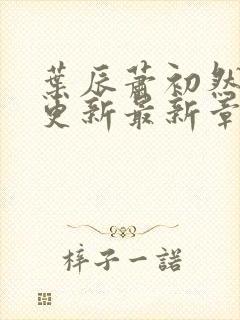 葉辰蕭初然
更新最新章
梓子一諾